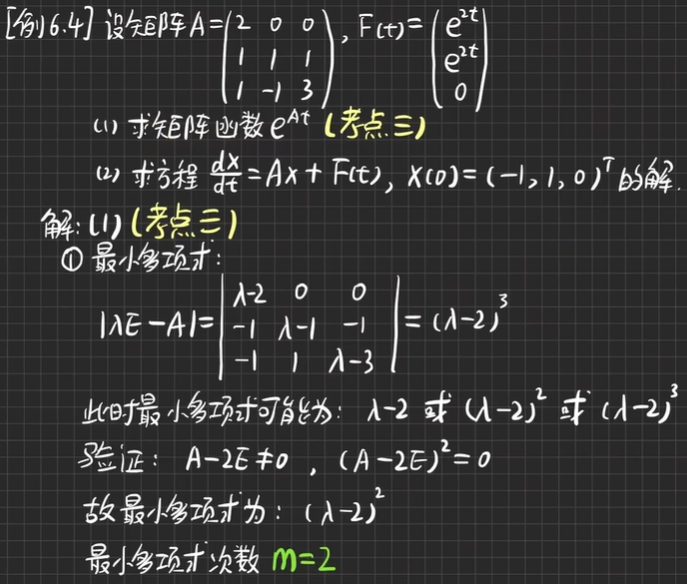 [例6.4] 设矩阵A=(2 0 0; 1 1 1; 1 -1 3), F(t)=(e^{2t}; e^{2t}; 0)
(1) 求矩阵函数 e^{At} (考点三)
(2) 求方程 dx/dt=Ax+F(t), X(0)=(-1,1,0)^T 的解.
解:(1)(考点三)
① 最小多项式:
|λE-A|=|λ-2 0 0; -1 λ-1 -1; -1 1 λ-3|=(λ-2)^3
此时最小多项式可能为: λ-2 或 (λ-2)^2 或 (λ-2)^3
验证: A-2E≠0 , (A-2E)^2=0
故最小多项式为: (λ-2)^2
最小多项式次数 m=2